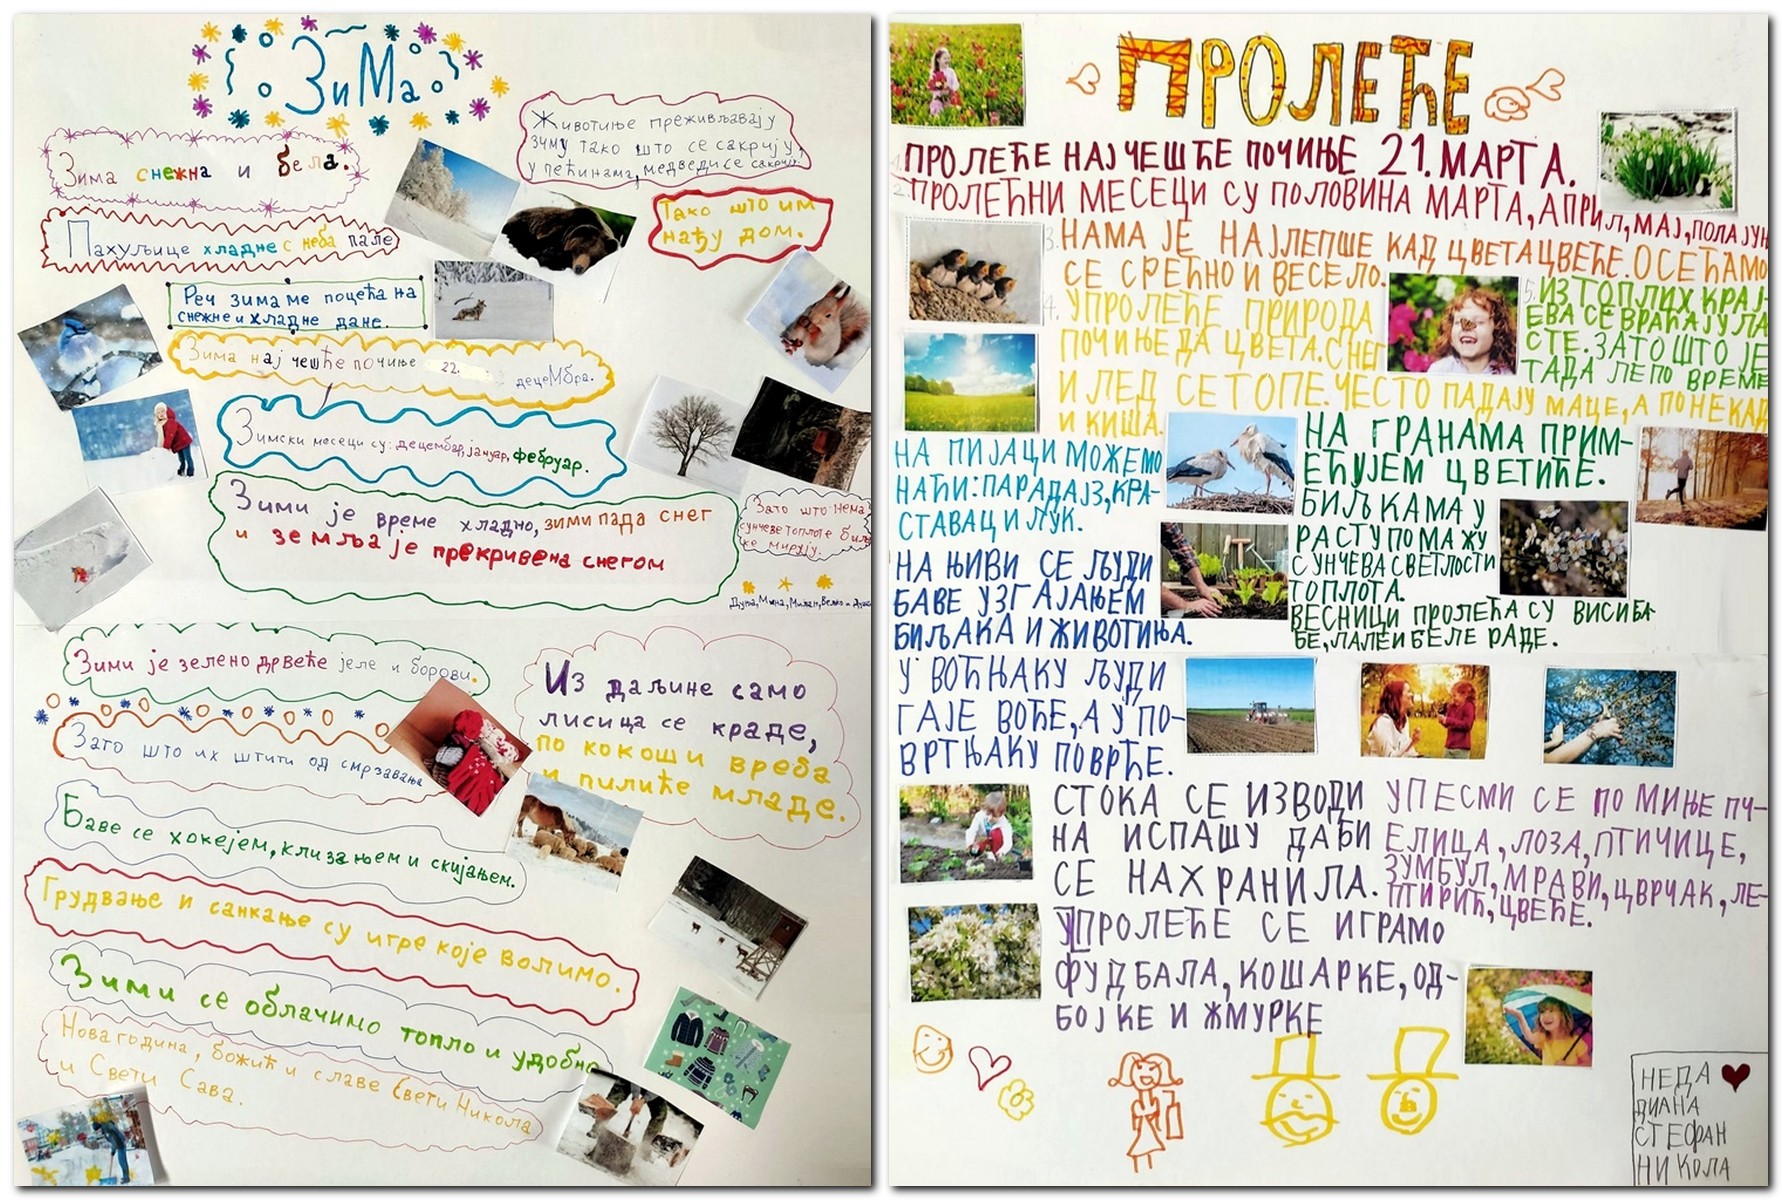 Зима
Зима снежна и бела.
Пахуљице хладне с неба пале
Реч зима ме поцећа на
снежне и хладне дане.
Зима нај чешће почиње 22. децеМбра.
Зимски месеци су: децембар, јануар, фебруар.
Зими је време хладно, зими пада снег
и земља је прекривена снегом
Животиње преживљавају
зиму тако што се сакрију,
у пећинама, медведи се сакрију.
Тако што им
нађу дом.
Зато што нема
сунчеве топлоте биљ
ке мирују.
Дуња, Мина, Милан, Вељко и
Зими је зелено дрвеће јеле и борови.
Зато што их штити од смрзавања
Баве се хокејем, клизањем и скијањем.
Грудвање и санкање су игре које волимо.
Зими се облачимо топло и удобно
Нова година, божић и славе Свети Никола
и Свети Сава.
Из даљине само
лисица се краде,
по кокоши вреба
и пилиће младе.
ПРОЛЕЋЕ
1. ПРОЛЕЋЕ НАЈ ЧЕШЋЕ ПОЧИЊЕ 21. МАРТА.
2. ПРОЛЕЋНИ МЕСЕЦИ СУ ПОЛОВИНА МАРТА, АПРИЛ, МАЈ, ПОЛА ЈУН
3. НАМА ЈЕ НАЈЛЕПШЕ КАД ЦВЕТА ЦВЕЋЕ. ОСЕЋАМО
СЕ СРЕЋНО И ВЕСЕЛО.
4. УПРОЛЕЋЕ ПРИРОДА
ПОЧИЊЕ ДА ЦВЕТА. СНЕГ
И ЛЕД СЕ ТОПЕ. ЧЕСТО ПАДАЈУ МАЦЕ, А ПОНЕКАД
И КИША.
5. ИЗ ТОПЛИХ КРАЈ-
ЕВА СЕ ВРАЋАЈУ ЛА
СТЕ. ЗАТО ШТО ЈЕ
ТАДА ЛЕПО ВРЕМЕ
НА ПИЈАЦИ МОЖЕМО
НАЋИ: ПАРАДАЈЗ, КРА-
СТАВАЦ И ЛУК.
НА ГРАНАМА ПРИМ-
ЕЋУЈЕМ ЦВЕТИЋЕ.
БИЉКАМА У
РАСТУ ПОМАЖУ
СУНЧЕВА СВЕТЛОСТ И
ТОПЛОТА.
ВЕСНИЦИ ПРОЛЕЋА СУ ВИСИБА-
БЕ, ЛАЛЕ И БЕЛЕ РАДЕ.
НА ЊИВИ СЕ ЉУДИ
БАВЕ УЗГАЈАЊЕМ
БИЉАКА И ЖИВОТИЊА.
У ВОЋЊАКУ ЉУДИ
ГАЈЕ ВОЋЕ, А У ПО-
ВРТЊАКУ ПОВРЋЕ.
СТОКА СЕ ИЗВОДИ
НА ИСПАШУ ДА БИ
СЕ НАХРАНИЛА.
УПЕСМИ СЕ ПОМИЊЕ ПЧ-
ЕЛИЦА, ЛОЗА, ПТИЧИЦЕ,
ЗУМБУЛ, МРАВИ, ЦВРЧАК, ЛЕ-
ПТИРИЋ, ЦВЕЋЕ.
УПРОЛЕЋЕ СЕ ИГРАМО
ФУДБАЛА, КОШАРКЕ, ОД-
БОЈКЕ И ЖМУРКЕ
НЕДА
ДИАНА
СТЕФАН
НИКОЛА